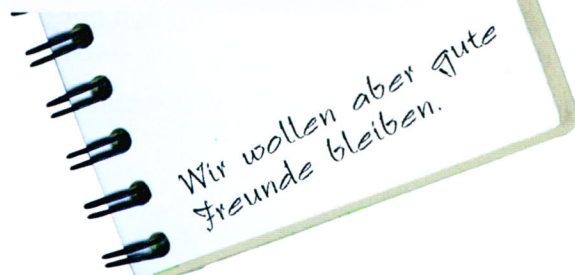 Wir wollen aber gute
Freunde bleiben.